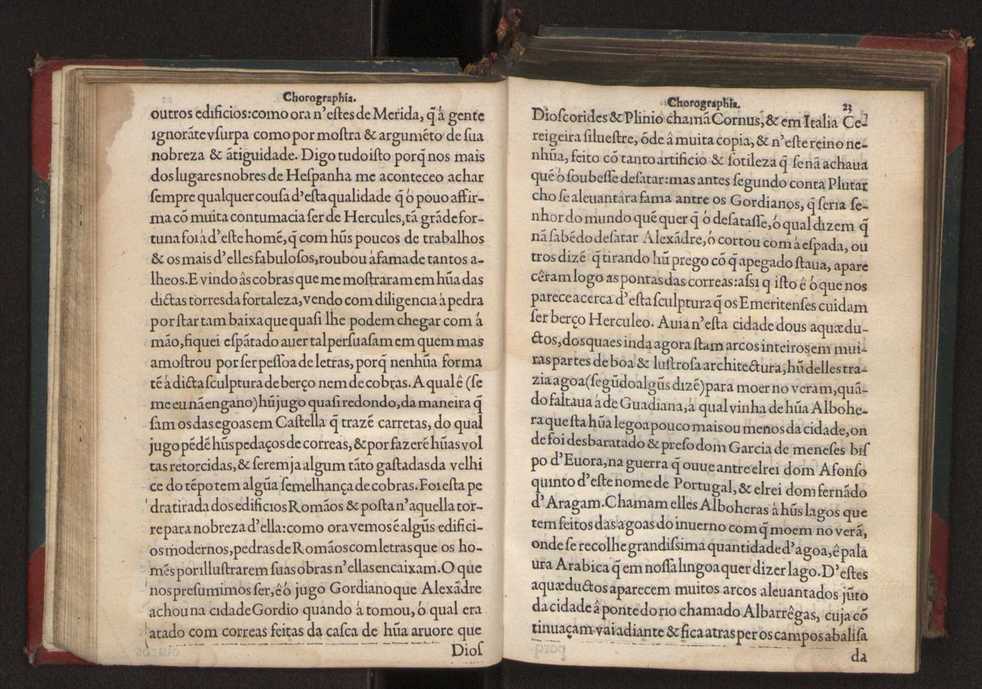 Chorographia.
outros edificios:como ora n'estes de Merida, q̃ á gente
ignorãte vsurpa como por mostra & argumẽto de sua
nobreza & ãtiguidade. Digo tudo isto porq̃ nos mais
dos lugares nobres de Hespanha me aconteceo achar
sempre qualquer cousa d'esta qualidade q̃ ó pouo affir-
ma cõ muita contumacia ser de Hercules, tã grãde for-
tuna foi á d'este homẽ, q̃ com hũs poucos de trabalhos
& os mais d'elles fabulosos, roubou á fama de tantos a-
lheos. E vindo âs cobras que me mostraram em hũa das
dictas torres da fortaleza, vendo com diligencia á pedra
por star tam baixa que quasi lhe podem chegar com á
mão, fiquei espãtado auer tal persuasam em quem mas
amostrou por ser pessoa de letras, porq̃ nenhũa forma
tẽ á dicta sculptura de berço nem de cobras. A qual ê (se
me eu nã engano) hũ jugo quasi redondo, da maneira q̃
sam os das egoas em Castella q̃ trazẽ carretas, do qual
jugo pẽdẽ hũs pedaços de correas, & por fazerẽ hũas vol
tas retorcidas, & serem ja algum tãto gastadas da velhi
ce do tẽpo tem algũa semelhança de cobras. Foi esta pe
dra tirada dos edificios Romãos & posta n'aquella tor-
re para nobreza d'ella: como ora vemos ẽ algũs edifici-
os modernos, pedras de Romãos com letras que os ho-
mẽs por illustrarem suas obras n'ellas encaixam. O que
nos presumimos ser, ê ó jugo Gordiano que Alexãdre
achou na cidade Gordio quando á tomou, ó qual era
atado com correas feitas da casca de hũa aruore que
Dios
Chorographia. 23
Dioscorides & Plinio chamã Cornus, & em Italia Ce-
reigeira siluestre, õde â muita copia, & n'este reino ne-
nhũa, feito cõ tanto artificio & sotileza q̃ se nã achaua
quẽ ó soubesse desatar: mas antes segundo conta Plutar
cho se aleuantára fama antre os Gordianos, q̃ seria se-
nhor do mundo quẽ quer q̃ ó desatasse, ó qual dizem q̃
nã sabẽdo desatar Alexãdre, ó cortou com á espada, ou
tros dizẽ q̃ tirando hũ prego cõ q̃ apegado staua, apare
cêram logo as pontas das correas: assi q̃ isto ê ó que nos
parece acerca d'esta sculptura q̃ os Emeritenses cuidam
ser berço Herculeo. Auia n'esta cidade dous aquædu-
ctos, dos quaes inda agora stam arcos inteiros em mui-
tas partes de boa & lustrosa architectura, hũ delles tra-
zia agoa (segũdo algũs dizẽ) para moer no veram, quã-
do faltaua á de Guadiana, á qual vinha de hũa Albohe-
ra que sta hũa legoa pouco mais ou menos da cidade, on
de foi desbaratado & preso dom Garcia de meneses bis
po d'Euora, na guerra q̃ ouue antre elrei dom Afonso
quinto d'este nome de Portugal, & elrei dom fernãdo
d'Aragam. Chamam elles Alboheras â hũs lagos que
tem feitos das agoas do inuerno com q̃ moem no verã,
onde se recolhe grandissima quantidade d'agoa, ê pala
ura Arabica q̃ em nossa lingoa quer dizer lago. D'estes
aquæductos aparecem muitos arcos aleuantados jũto
da cidade â ponte do rio chamado Albarrêgas, cuja cõ
tinuaçam vai adiante & fica atras per os campos abalisa
da